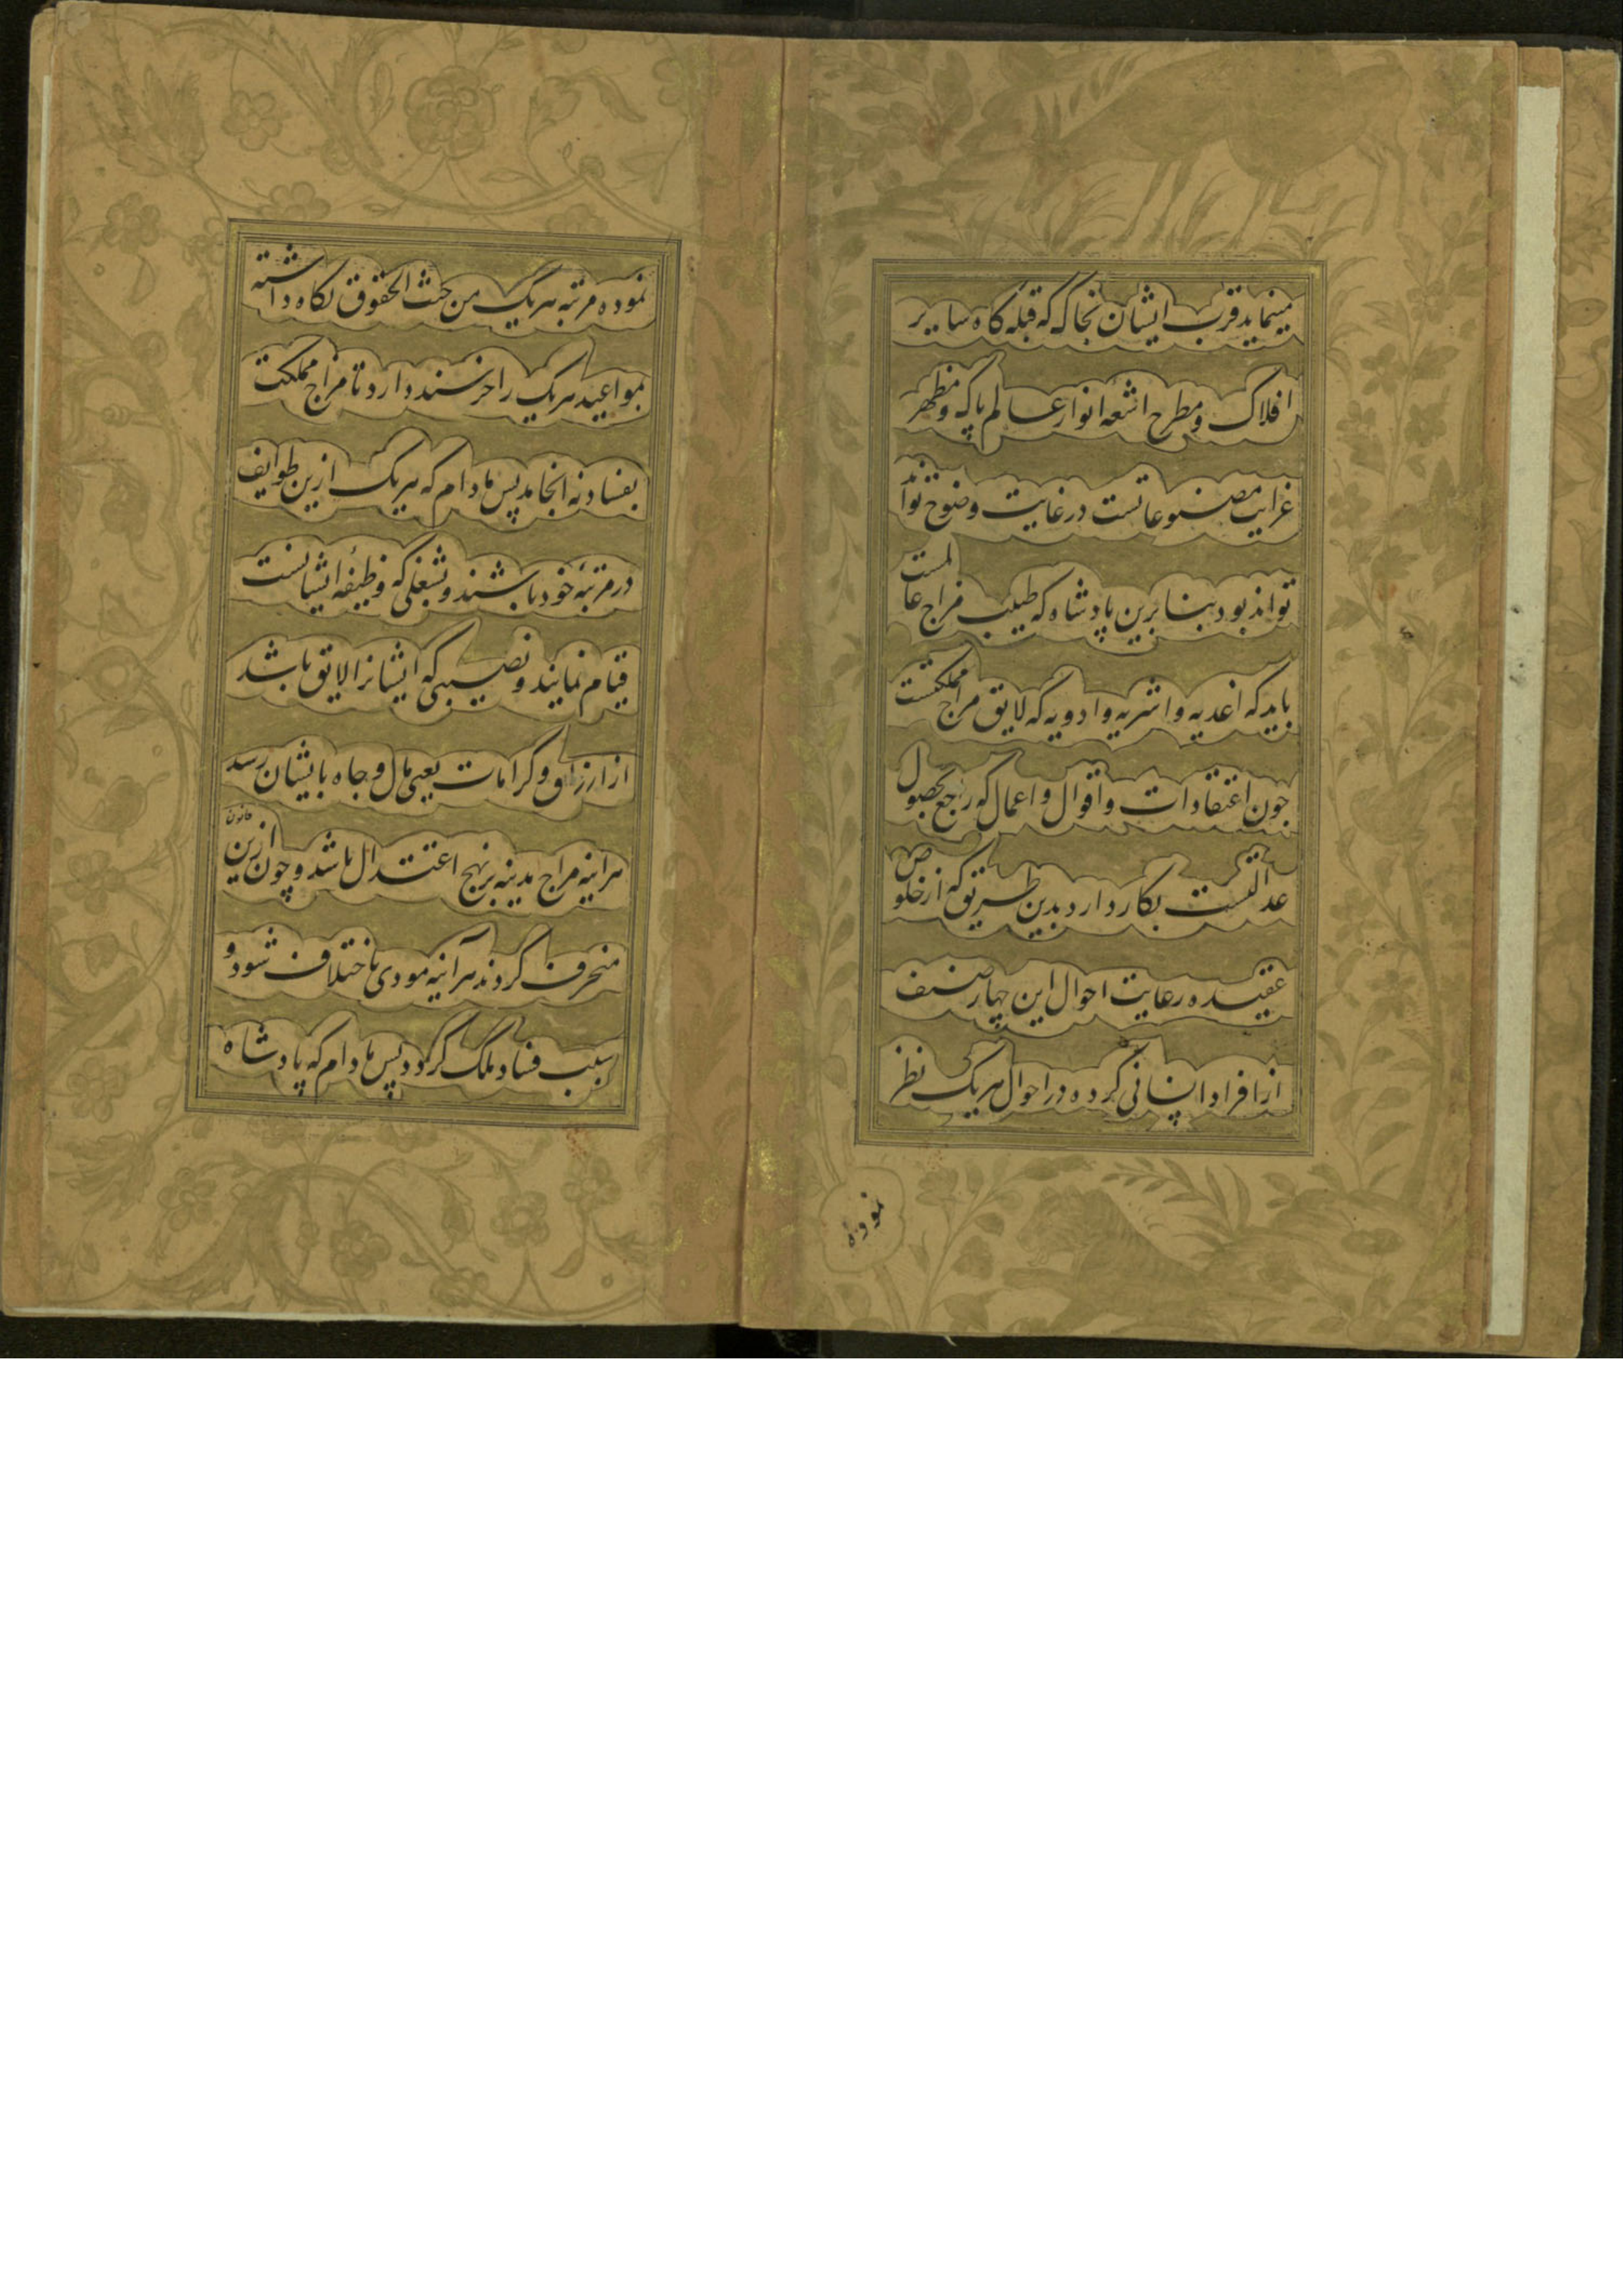 مینماید قرب ایشان بخاک که قبله کاه سایر
افلاک و مطرح اشعه انوار عالم پاک و مظهر
غرایب مصنوعاتست در غایت وضوح تواند
تواند بود بنا برین پادشاه که طبیب مزاج عالمست
باید که اغدیه و اشربه و ادویه که لایق مزاج مملکتست
چون اعتقادات و اقوال و اعمال که راجع بحصول
عدالتست بکار دارد بدین طریق که از خلوص
عقیده رعایت احوال این چهار صنف
از افراد انسانی کرده در احوال هر یک نظر
نموده
نموده مرتبه هر یک من حیث الحقوق نکاه داشته
بمواعید هر یک را خرسند دارد تا مزاج مملکت
بفساد نه انجامد پس مادام که هر یک ازین طوایف
در مرتبهٔ خود باشند و بشغلی که وظیفهٔ ایشانست
قیام نمایند و نصیبی که ایشانرا لایق باشد
از ارزاق و کرامات یعنی مال و جاه بایشان رسد
هراینه مزاج مدینه بر نهج اعتدال باشد و چون ازین قانون
منحرف کردند هرآینه مودی باختلاف شود و
سبب فساد ملک کردد پس مادام که پادشاه